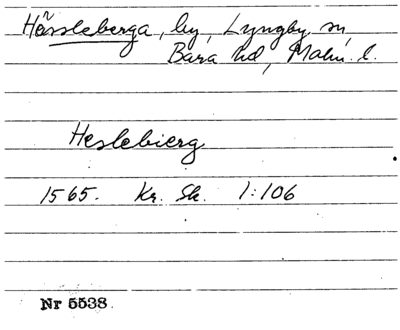 Hässleberga, by, Lyngby sn,
Bara hd, Malm. l.
Heslebierg
1565. Kr. Sk. 1:106
Nr 5538.